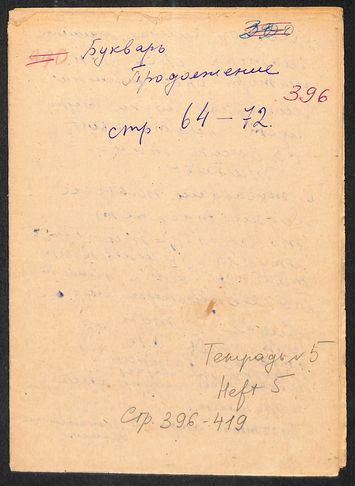 390
Букварь
Продолжение
396
стр 64-72.
Тетрадь № 5
Heft 5
Стр. 396-419